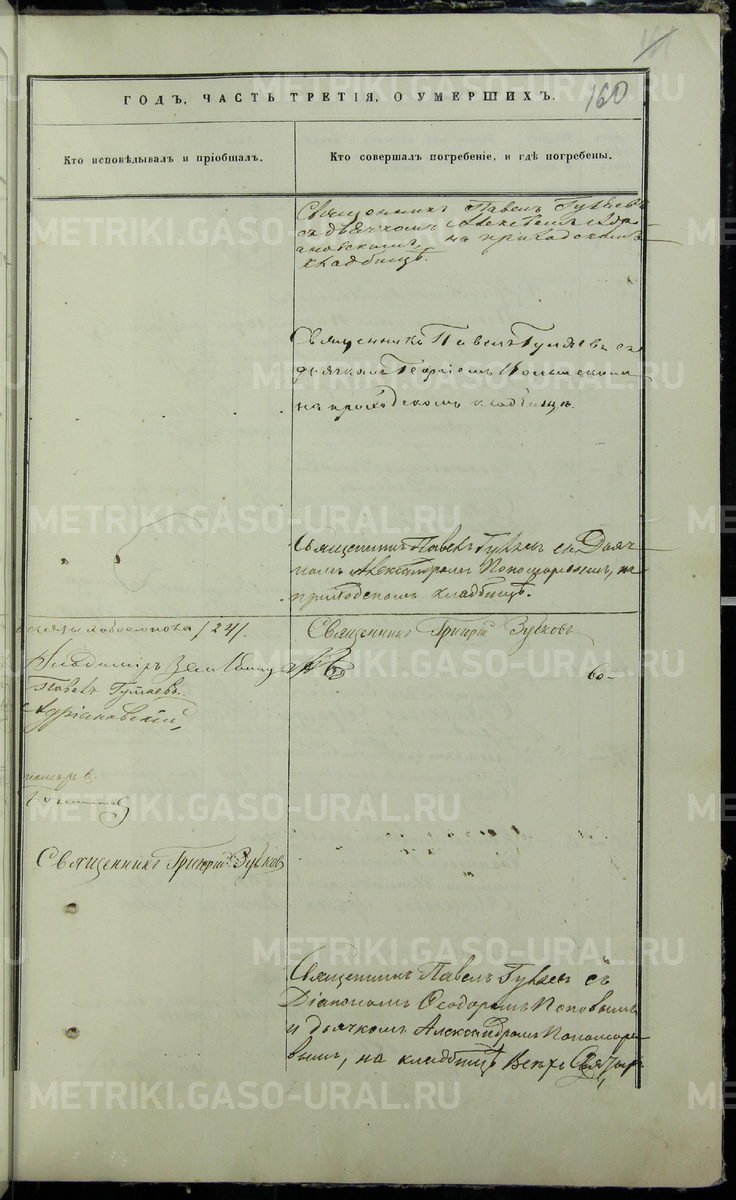 160
ГОДЪ, ЧАСТЬ ТРЕТІЯ, О УМЕРШИХЪ.
Кто исповѣдывалъ и пріобщалъ.
Кто совершалъ погребеніе, и гдѣ погребены.
Священникъ Павелъ Гуляевъ
съ дьячкомъ Алексѣемъ Адрі
ановскимъ, на приходскомъ
кладбищѣ.
Священникъ Павелъ Гуляевъ съ
дьячкомъ Георгіемъ
на приходскомъ кладбищѣ.
Священникъ Павелъ Гуляевъ съ Дьяч
комъ Александромъ Пономаревымъ, на
приходскомъ кладбищѣ.
/24/.
Священникъ Григорій Зубковъ
Владиміръ Земляницынъ
Павелъ Гуляевъ.
Адріановскій,
Священникъ Григорій Зубковъ
Священникъ Павелъ Гуляевъ съ
Діакономъ Ѳеодоромъ Поповымъ
и дьячкомъ Александромъ Пономаре
вымъ, на кладбищѣ Всѣхъ Святыхъ
METRIKI.GASO-URAL.RU